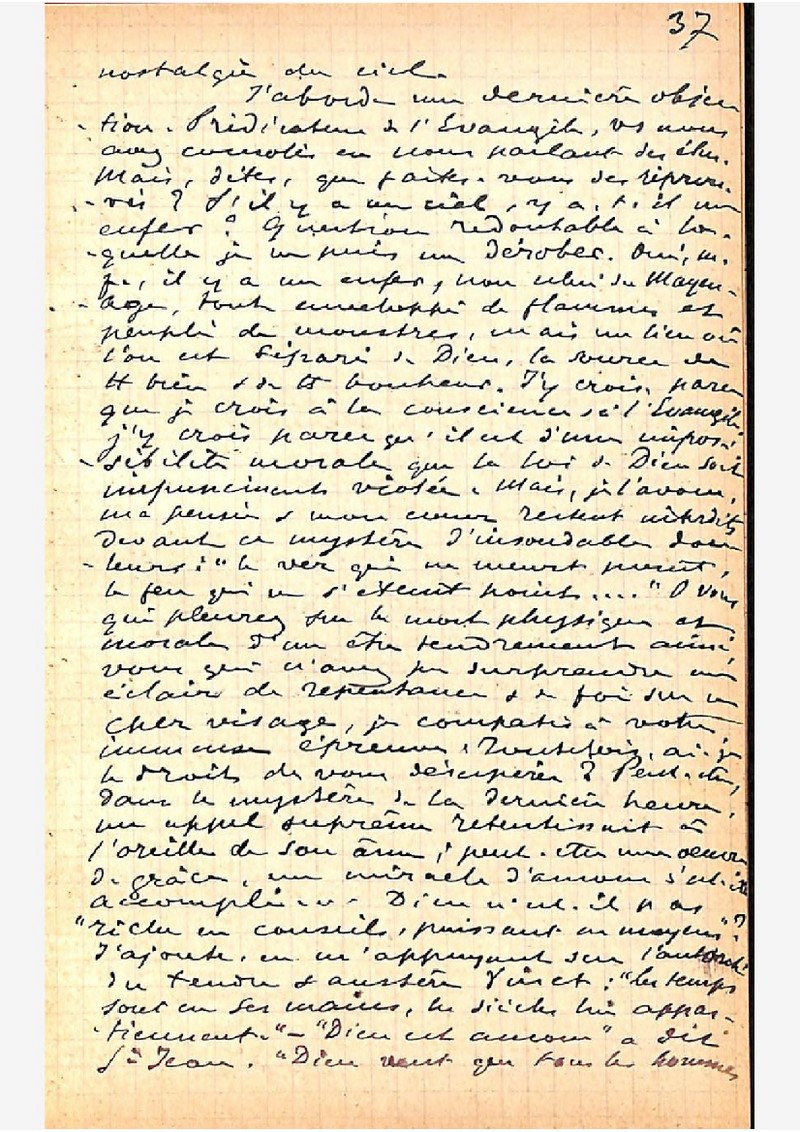 37
nostalgie du ciel.
J'aborde une dernière objec
-tion. Prédicateur de l'Evangile, vs nous
avez consolés en nous parlant des élus.
Mais, dites, que faites-vous des réprou-
-vés ? S'il y a un ciel, y a-t-il un
enfer ? Question redoutable à la-
-quelle je ne puis me dérober. Oui, m.
f., il y a un enfer, non celui du Moyen-
-âge, tout enveloppé de flammes et
peuplé de monstres, mais un lieu où
l'on est séparé de Dieu, la source de
tt bien & de tt bonheur. J'y crois, parce
que je crois à la conscience & à l'Evangile,
j'y crois parce qu'il est d'une impos-
-sibilité morale que la loi de Dieu soit
impunément violée. Mais, je l'avoue,
ma pensée & mon cœur restent interdits
devant ce mystère d'insondable dou
-leurs : "le ver qui ne meurt point,
le feu qui ne s'éteint point...." O vous
qui pleurez sur la mort physique et
morale d'un être tendrement aimé,
vous qui n'avez pu surprendre un
éclair de repentance & de foi sur un
cher visage, je compatis à votre
immense épreuve. Toutefois, ai-je
le droit de vous désespérer ? Peut-être,
dans le mystère de la dernière heure,
un appel suprême retentissait à
l'oreille de son âme ; peut-être une oeuvre
de grâce, un miracle d'amour s'est-il
accompli... Dieu n'est-il pas
"riche en conseils, puissant en moyens" ?
J'ajoute, en m'appuyant sur l'autorité
du tendre & austère Vinet : "les temps
sont en ses mains, les siècles lui appar-
-tiennent." - "Dieu est amour" a dit
St Jean. "Dieu veut que tous les hommes